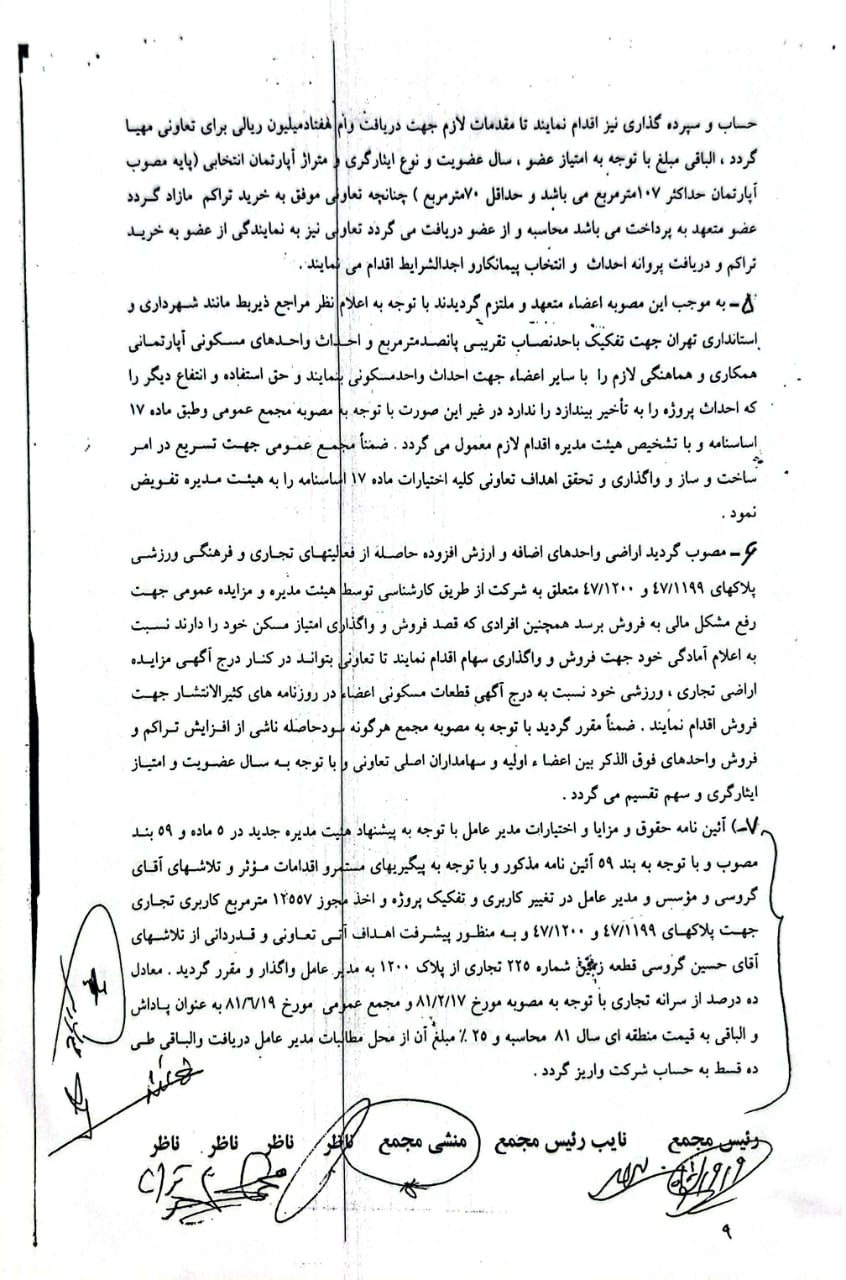 حساب و سپرده گذاری نیز اقدام نمایند تا مقدمات لازم جهت دریافت وام هفتادمیلیون ریالی برای تعاونی مهیا
گردد ، الباقی مبلغ با توجه به امتیاز عضو ، سال عضویت و نوع ایثارگری و متراژ آپارتمان انتخابی (پایه مصوب
آپارتمان حداکثر ۱۰۷مترمربع می باشد و حداقل ۷۰مترمربع ) چنانچه تعاونی موفق به خرید تراکم مازاد گردد
عضو متعهد به پرداخت می باشد محاسبه و از عضو دریافت می گردد تعاونی نیز به نمایندگی از عضو به خرید
تراکم و دریافت پروانه احداث و انتخاب پیمانکارو اجدالشرایط اقدام می نمایند .
۵- به موجب این مصوبه اعضاء متعهد و ملتزم گردیدند با توجه به اعلام نظر مراجع ذیربط مانند شهرداری و
استانداری تهران جهت تفکیک باحدنصاب تقریبی پانصدمترمربع و احداث واحدهای مسکونی آپارتمانی
همکاری و هماهنگی لازم را با سایر اعضاء جهت احداث واحدمسکونی بنمایند و حق استفاده و انتفاع دیگر را
که احداث پروژه را به تأخیر بیندازد را ندارد در غیر این صورت با توجه به مصوبه مجمع عمومی وطبق ماده ۱۷
اساسنامه و با تشخیص هیئت مدیره اقدام لازم معمول می گردد . ضمناً مجمع عمومی جهت تسریع در امر
ساخت و ساز و واگذاری و تحقق اهداف تعاونی کلیه اختیارات ماده ۱۷ اساسنامه را به هیئت مدیره تفویض
نمود .
۶- مصوب گردید اراضی واحدهای اضافه و ارزش افزوده حاصله از فعالیتهای تجاری و فرهنگی ورزشی
پلاکهای ۴۷/۱۱۹۹ و ۴۷/۱۲۰۰ متعلق به شرکت از طریق کارشناسی توسط هیئت مدیره و مزایده عمومی جهت
رفع مشکل مالی به فروش برسد همچنین افرادی که قصد فروش و واگذاری امتیاز مسکن خود را دارند نسبت
به اعلام آمادگی خود جهت فروش و واگذاری سهام اقدام نمایند تا تعاونی بتواند در کنار درج آگهی مزایده
اراضی تجاری ، ورزشی خود نسبت به درج آگهی قطعات مسکونی اعضاء در روزنامه های کثیرالانتشار جهت
فروش اقدام نمایند . ضمناً مقرر گردید با توجه به مصوبه مجمع هرگونه سودحاصله ناشی از افزایش تراکم و
فروش واحدهای فوق الذکر بین اعضا ء اولیه و سهامداران اصلی تعاونی و با توجه به سال عضویت و امتیاز
ایثارگری و سهم تقسیم می گردد .
۷-) آئین نامه حقوق و مزایا و اختیارات مدیر عامل با توجه به پیشنهاد هئیت مدیره جدید در ۵ ماده و ۵۹ بند
مصوب و با توجه به بند ۵۹ آئین نامه مذکور و با توجه به پیگیریهای مستمرو اقدامات مؤثر و تلاشهای آقای
گروسی و مؤسس و مدیر عامل در تغییر کاربری و تفکیک پروژه و اخذ مجوز ۱۲۵۵۷ مترمربع کاربری تجاری
جهت پلاکهای ۴۷/۱۱۹۹ و ۴۷/۱۲۰۰ و به منظور پیشرفت اهداف آتی تعاونی و قدردانی از تلاشهای
آقای حسین گروسی قطعه زمین شماره ۲۲۵ تجاری از پلاک ۱۲۰۰ به مدیر عامل واگذار و مقرر گردید . معادل
ده درصد از سرانه تجاری با توجه به مصوبه مورخ ۸۱/۲/۱۷ و مجمع عمومی مورخ ۸۱/۶/۱۹ به عنوان پاداش
و الباقی به قیمت منطقه ای سال ۸۱ محاسبه و ۲۵ ٪ مبلغ آن از محل مطالبات مدیر عامل دریافت والباقی طی
ده قسط به حساب شرکت واریز گردد .
رئیس مجمع نایب رئیس مجمع منشی مجمع ناظر ناظر ناظر ناظر
۹